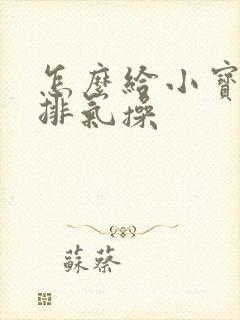 怎麼給小寶
排氣操
蘇蔡